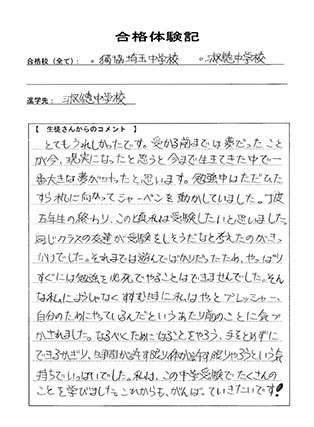 合格体験記
合格校（全て）： 。獨協埼玉中学校 。淑徳中学校
進学先： 淑徳中学校
【 生徒さんからのコメント 】
とてもうれしかったです。受かる前までは夢だったこと
が今、現実になったと思うと今まで生きてきた中で一
番大きな夢がかなったと思います。勉強中はただひた
すら机に向かってシャーペンを動かしていました。丁度
五年生の終わり、このと真れは受験したいと思いました。
同じクラスの友達が受験をしそうだなと考えたのがきっ
かけでした。それまでは遊んでばかりだったため、やっぱり
すぐには勉強を必死でやることはできませんでした。そん
な私にようしゃなくすすむ時に私はやっとプレッシャー、
自分のためにやっているんだというあたり前のことに気づ
かされました。なるべくためになることをやろう、手をとめずに
できるかぎり、時間が許す限り体が許す限りやろうという気
持ちでいっぱいでした。私は、この中学受験でたくさんの
ことを学びました。これからも、がんばっていきたいです！